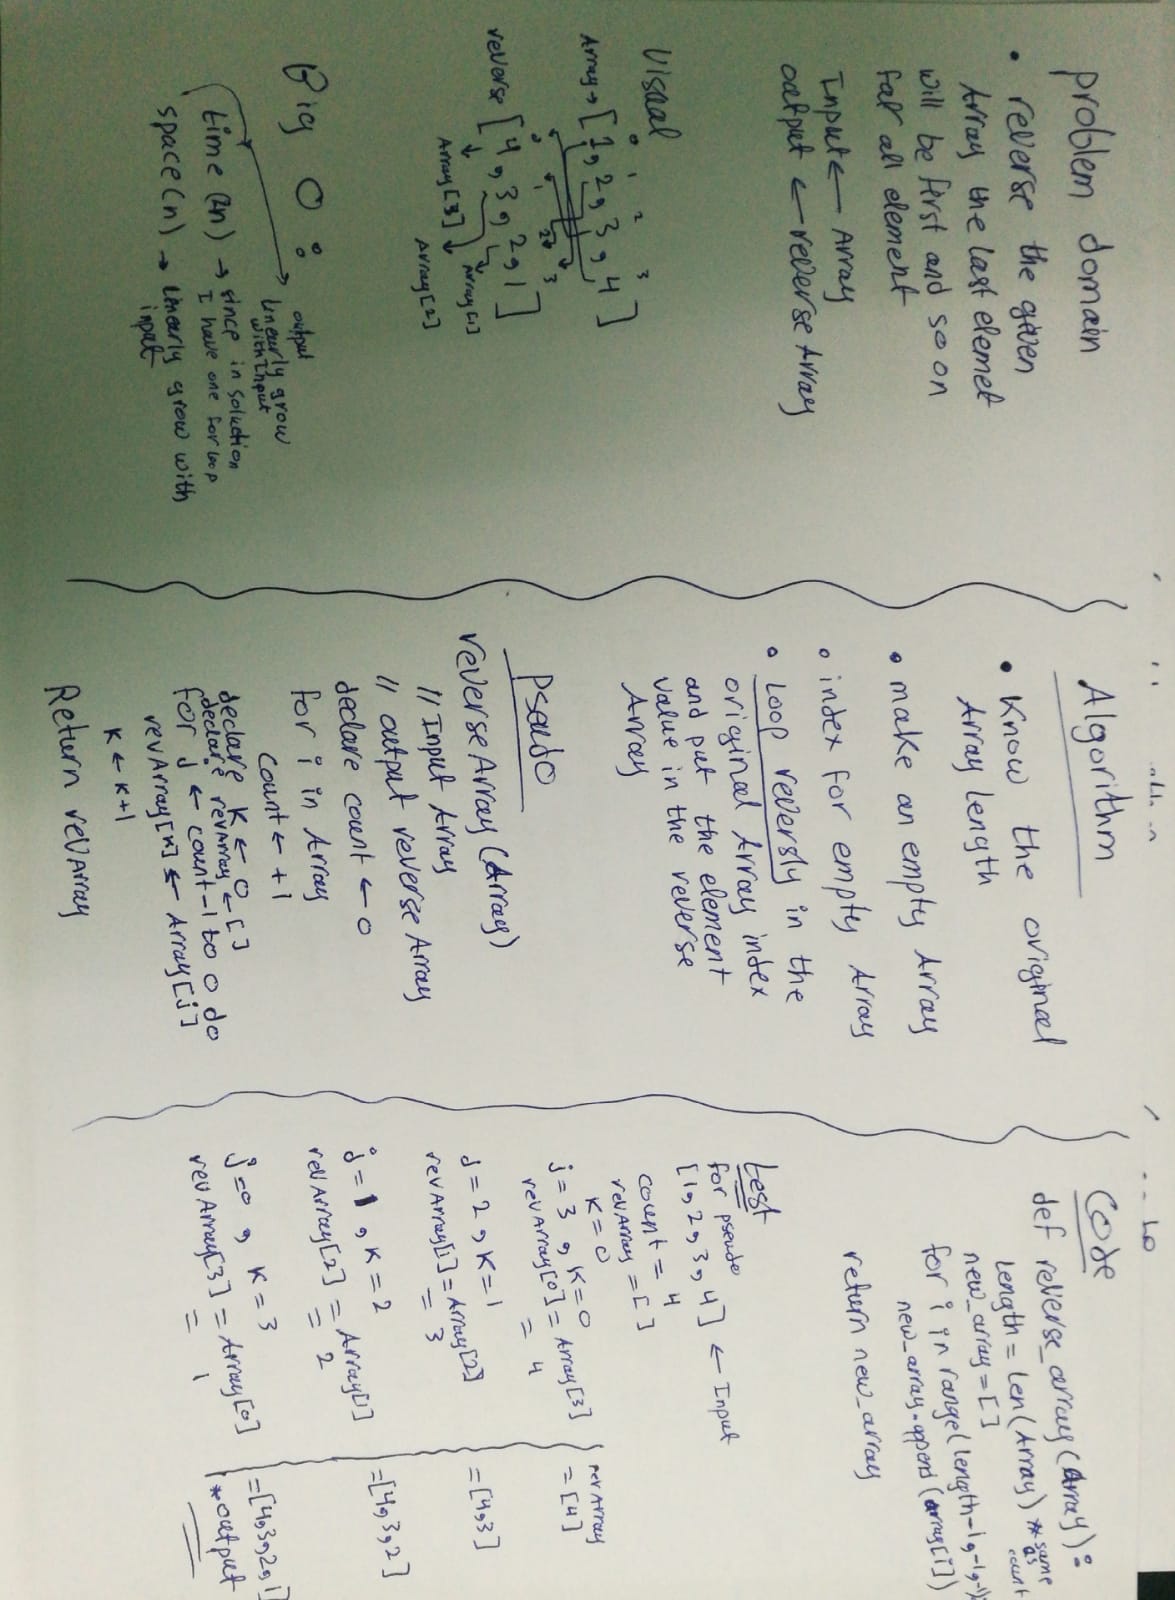 problem domain
• reverse the given
Array the last elemet
will be first and so on
for all element
Input ← Array
output ← reverse Array
Visual
0 1 2 3
Array → [1, 2, 3, 4]
0 1 2 3
reverse [4, 3, 2, 1]
Array[1]
Array[3]
Array[2]
Big O :
output
linearly grow
with Input
time (2n) → since in solution
I have one for loop
space(n) → linearly grow with
input
Algorithm
• Know the original
Array Length
• make an empty Array
• index for empty Array
• Loop reversly in the
original Array index
and put the element
value in the reverse
Array
Pseudo
reverseArray (Array)
// Input Array
// output reverse Array
declare count ← 0
for i in Array
count ← +1
declare K ← 0
declare revArray ← [ ]
for j ← count-1 to 0 do
revArray[K] ← Array[j]
K ← K+1
Return revArray
Code
def reverse_array(Array):
Length = Len(Array) * same as count
new_array = [ ]
for i in range(length-1, -1, -1):
new_array.append(array[i])
return new_array
test
for pseudo
[1, 2, 3, 4] ← Input
count = 4
revArray = [ ]
K = 0
j = 3 , K = 0
revArray[0] = Array[3]
= 4
rev Array
= [4]
j = 2 , K = 1
revArray[1] = Array[2]
= 3
= [4,3]
j = 1 , K = 2
revArray[2] = Array[1]
= 2
= [4,3,2]
j = 0 , K = 3
revArray[3] = Array[0]
= 1
= [4,3,2,1]
* output